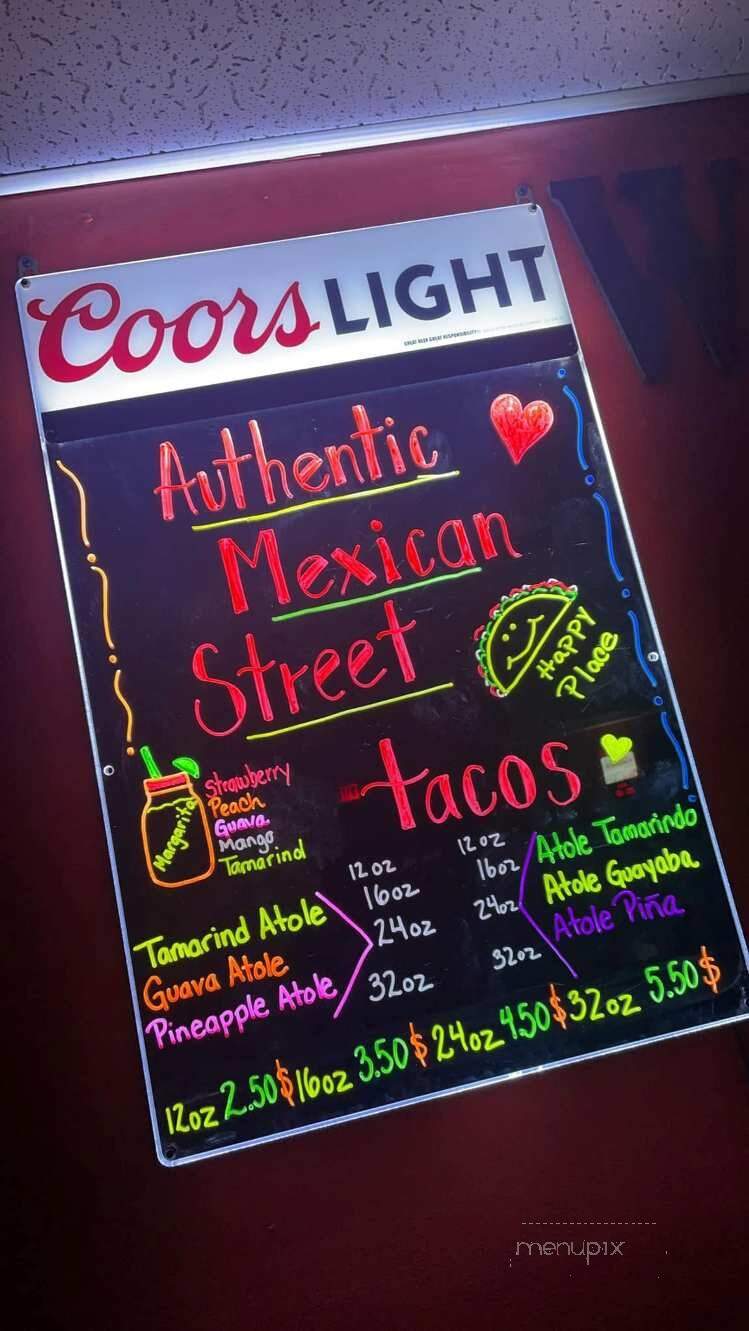 Coors LIGHT
GREAT BEER GREAT RESPONSIBILITY®
W
Authentic
Mexican
Street
tacos
Happy
Place
Margarita
Strawberry
Peach
Guava
Mango
Tamarind
Tamarind Atole
Guava Atole
Pineapple Atole
12oz
16oz
24oz
32oz
12oz
16oz
24oz
32oz
Atole Tamarindo
Atole Guayaba
Atole Piña
12oz 2.50$ 16oz 3.50$ 24oz 4.50$ 32oz 5.50$
menupix